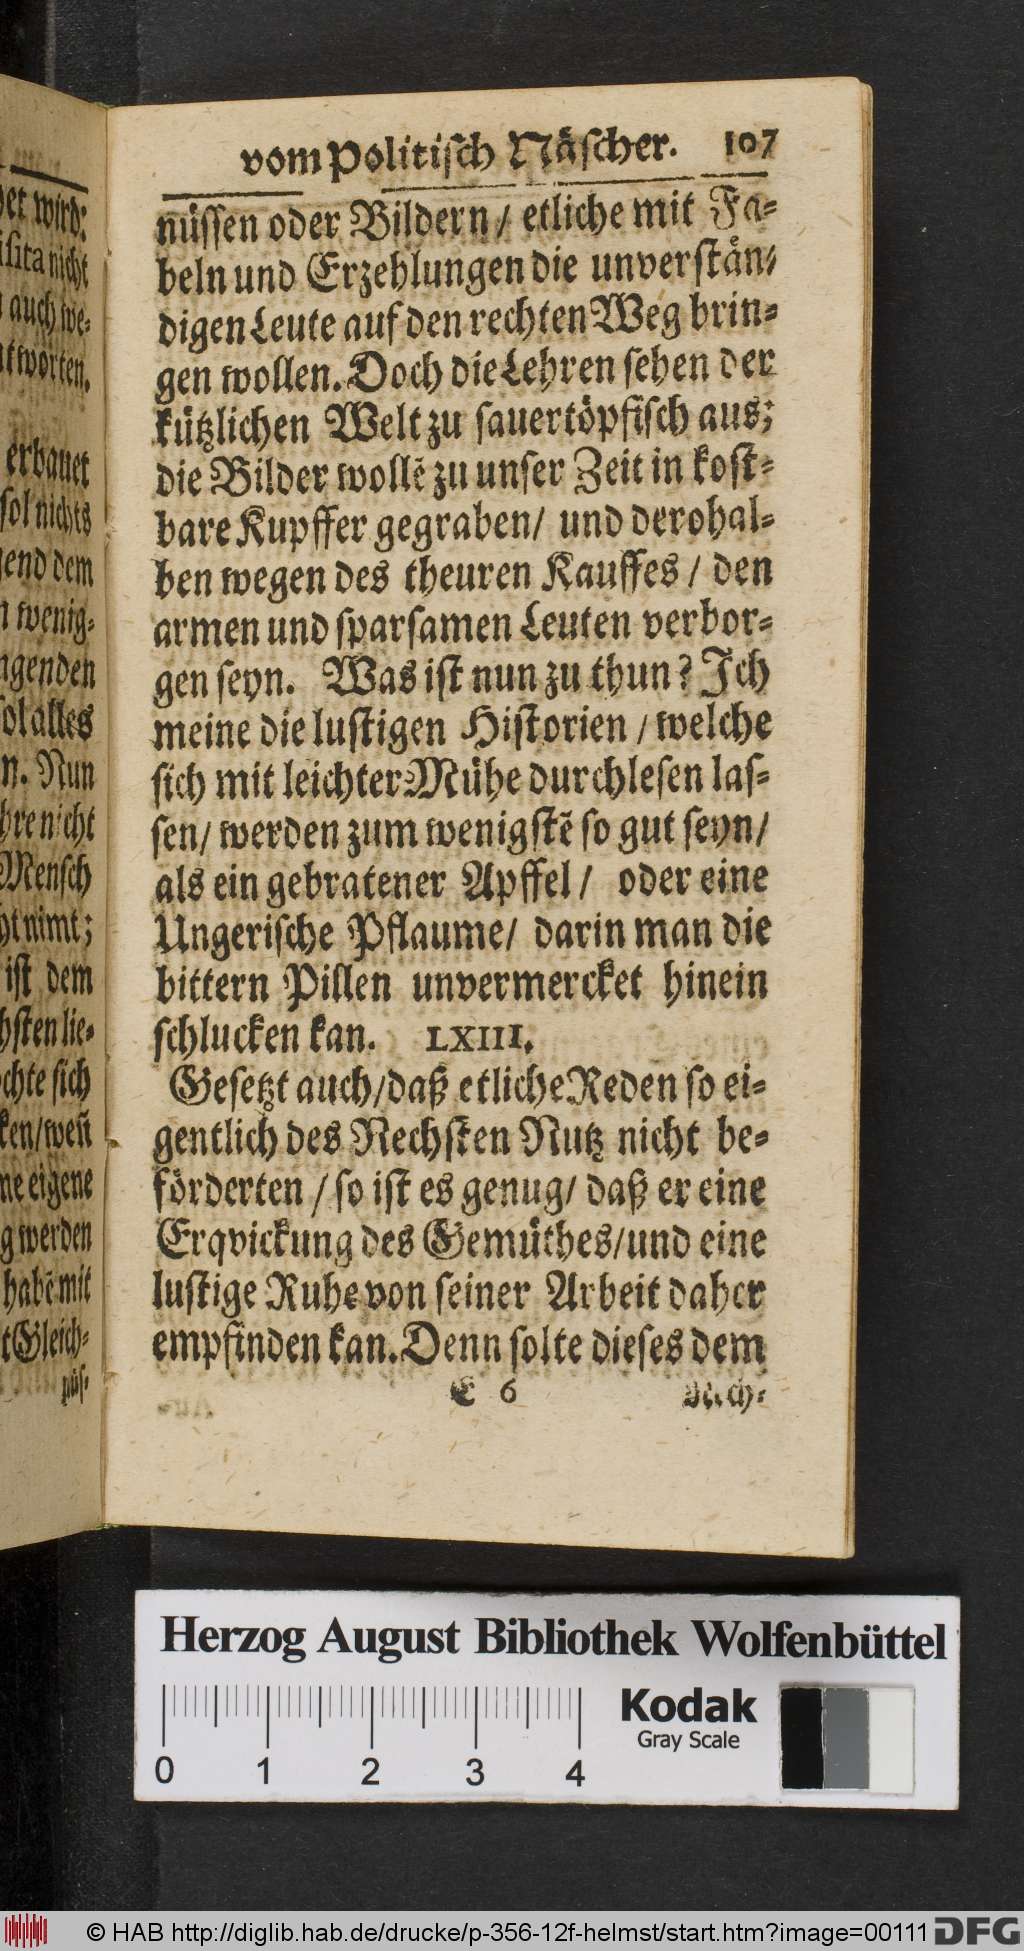 det wird:
nicht
auch we-
erbauet
sol nichts
dem
n wenig-
alles
n. Nun
Mensch
nimt;
ist dem
sich
eigene
werden
habē mit
vom Politisch Näscher. 107
nüssen oder Bildern / etliche mit Fa-
beln und Erzehlungen die unverstän-
digen Leute auf den rechten Weg brin-
gen wollen. Doch die Lehren sehen der
kützlichen Welt zu sauertöpfisch aus;
die Bilder wollē zu unser Zeit in kost-
bare Kupffer gegraben / und derohal-
ben wegen des theuren Kauffes / den
armen und sparsamen Leuten verbor-
gen seyn. Was ist nun zu thun? Ich
meine die lustigen Historien / welche
sich mit leichter Mühe durchlesen las-
sen / werden zum wenigstē so gut seyn /
als ein gebratener Apffel / oder eine
Ungerische Pflaume / darin man die
bittern Pillen unvermercket hinein
schlucken kan. LXIII.
Gesetzt auch / daß etliche Reden so ei-
gentlich des Nechsten Nutz nicht be-
förderten / so ist es genug / daß er eine
Erqvickung des Gemüthes / und eine
lustige Ruhe von seiner Arbeit daher
empfinden kan. Denn solte dieses dem
E 6 Nech-
Herzog August Bibliothek Wolfenbüttel
Kodak
Gray Scale
0 1 2 3 4
© HAB http://diglib.hab.de/drucke/p-356-12f-helmst/start.htm?image=00111 DFG